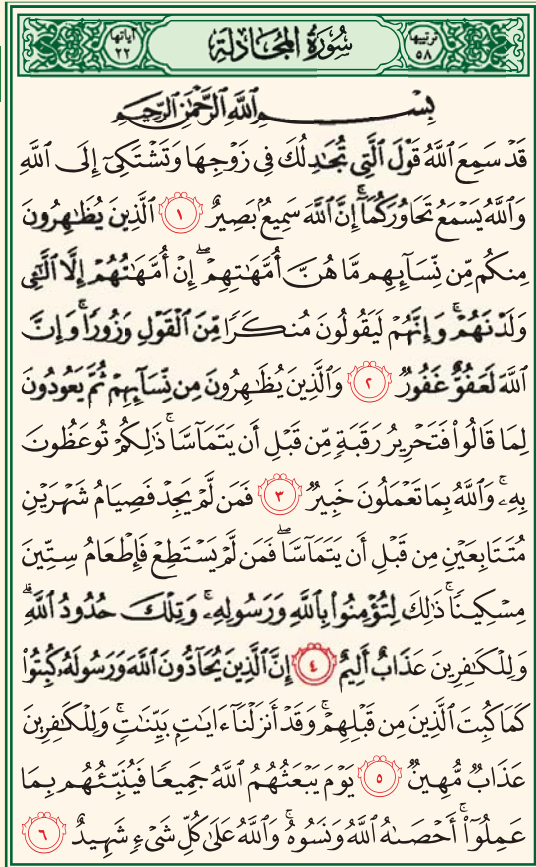 ترتيبها ٥٨ سُورَةُ المُجَادلَةِ آياتها ٢٢
بِسْمِ ٱللَّهِ ٱلرَّحْمَٰنِ ٱلرَّحِيمِ
قَدْ سَمِعَ ٱللَّهُ قَوْلَ ٱلَّتِي تُجَٰدِلُكَ فِي زَوْجِهَا وَتَشْتَكِيٓ إِلَى ٱللَّهِ
وَٱللَّهُ يَسْمَعُ تَحَاوُرَكُمَآۚ إِنَّ ٱللَّهَ سَمِيعُۢ بَصِيرٌ ١ ٱلَّذِينَ يُظَٰهِرُونَ
مِنكُم مِّن نِّسَآئِهِم مَّا هُنَّ أُمَّهَٰتِهِمْۖ إِنْ أُمَّهَٰتُهُمْ إِلَّا ٱلَّٰٓـِٔي
وَلَدْنَهُمْۚ وَإِنَّهُمْ لَيَقُولُونَ مُنكَرًا مِّنَ ٱلْقَوْلِ وَزُورًاۚ وَإِنَّ
ٱللَّهَ لَعَفُوٌّ غَفُورٌ ٢ وَٱلَّذِينَ يُظَٰهِرُونَ مِن نِّسَآئِهِمْ ثُمَّ يَعُودُونَ
لِمَا قَالُوا۟ فَتَحْرِيرُ رَقَبَةٍ مِّن قَبْلِ أَن يَتَمَآسَّاۚ ذَٰلِكُمْ تُوعَظُونَ
بِهِۦۚ وَٱللَّهُ بِمَا تَعْمَلُونَ خَبِيرٌ ٣ فَمَن لَّمْ يَجِدْ فَصِيَامُ شَهْرَيْنِ
مُتَتَابِعَيْنِ مِن قَبْلِ أَن يَتَمَآسَّاۖ فَمَن لَّمْ يَسْتَطِعْ فَإِطْعَامُ سِتِّينَ
مِسْكِينًاۚ ذَٰلِكَ لِتُؤْمِنُوا۟ بِٱللَّهِ وَرَسُولِهِۦۚ وَتِلْكَ حُدُودُ ٱللَّهِۗ
وَلِلْكَٰفِرِينَ عَذَابٌ أَلِيمٌ ٤ إِنَّ ٱلَّذِينَ يُحَآدُّونَ ٱللَّهَ وَرَسُولَهُۥ كُبِتُوا۟
كَمَا كُبِتَ ٱلَّذِينَ مِن قَبْلِهِمْۚ وَقَدْ أَنزَلْنَآ ءَايَٰتِۭ بَيِّنَٰتٍۚ وَلِلْكَٰفِرِينَ
عَذَابٌ مُّهِينٌ ٥ يَوْمَ يَبْعَثُهُمُ ٱللَّهُ جَمِيعًا فَيُنَبِّئُهُم بِمَا
عَمِلُوٓا۟ۚ أَحْصَىٰهُ ٱللَّهُ وَنَسُوهُۚ وَٱللَّهُ عَلَىٰ كُلِّ شَىْءٍ شَهِيدٌ ٦